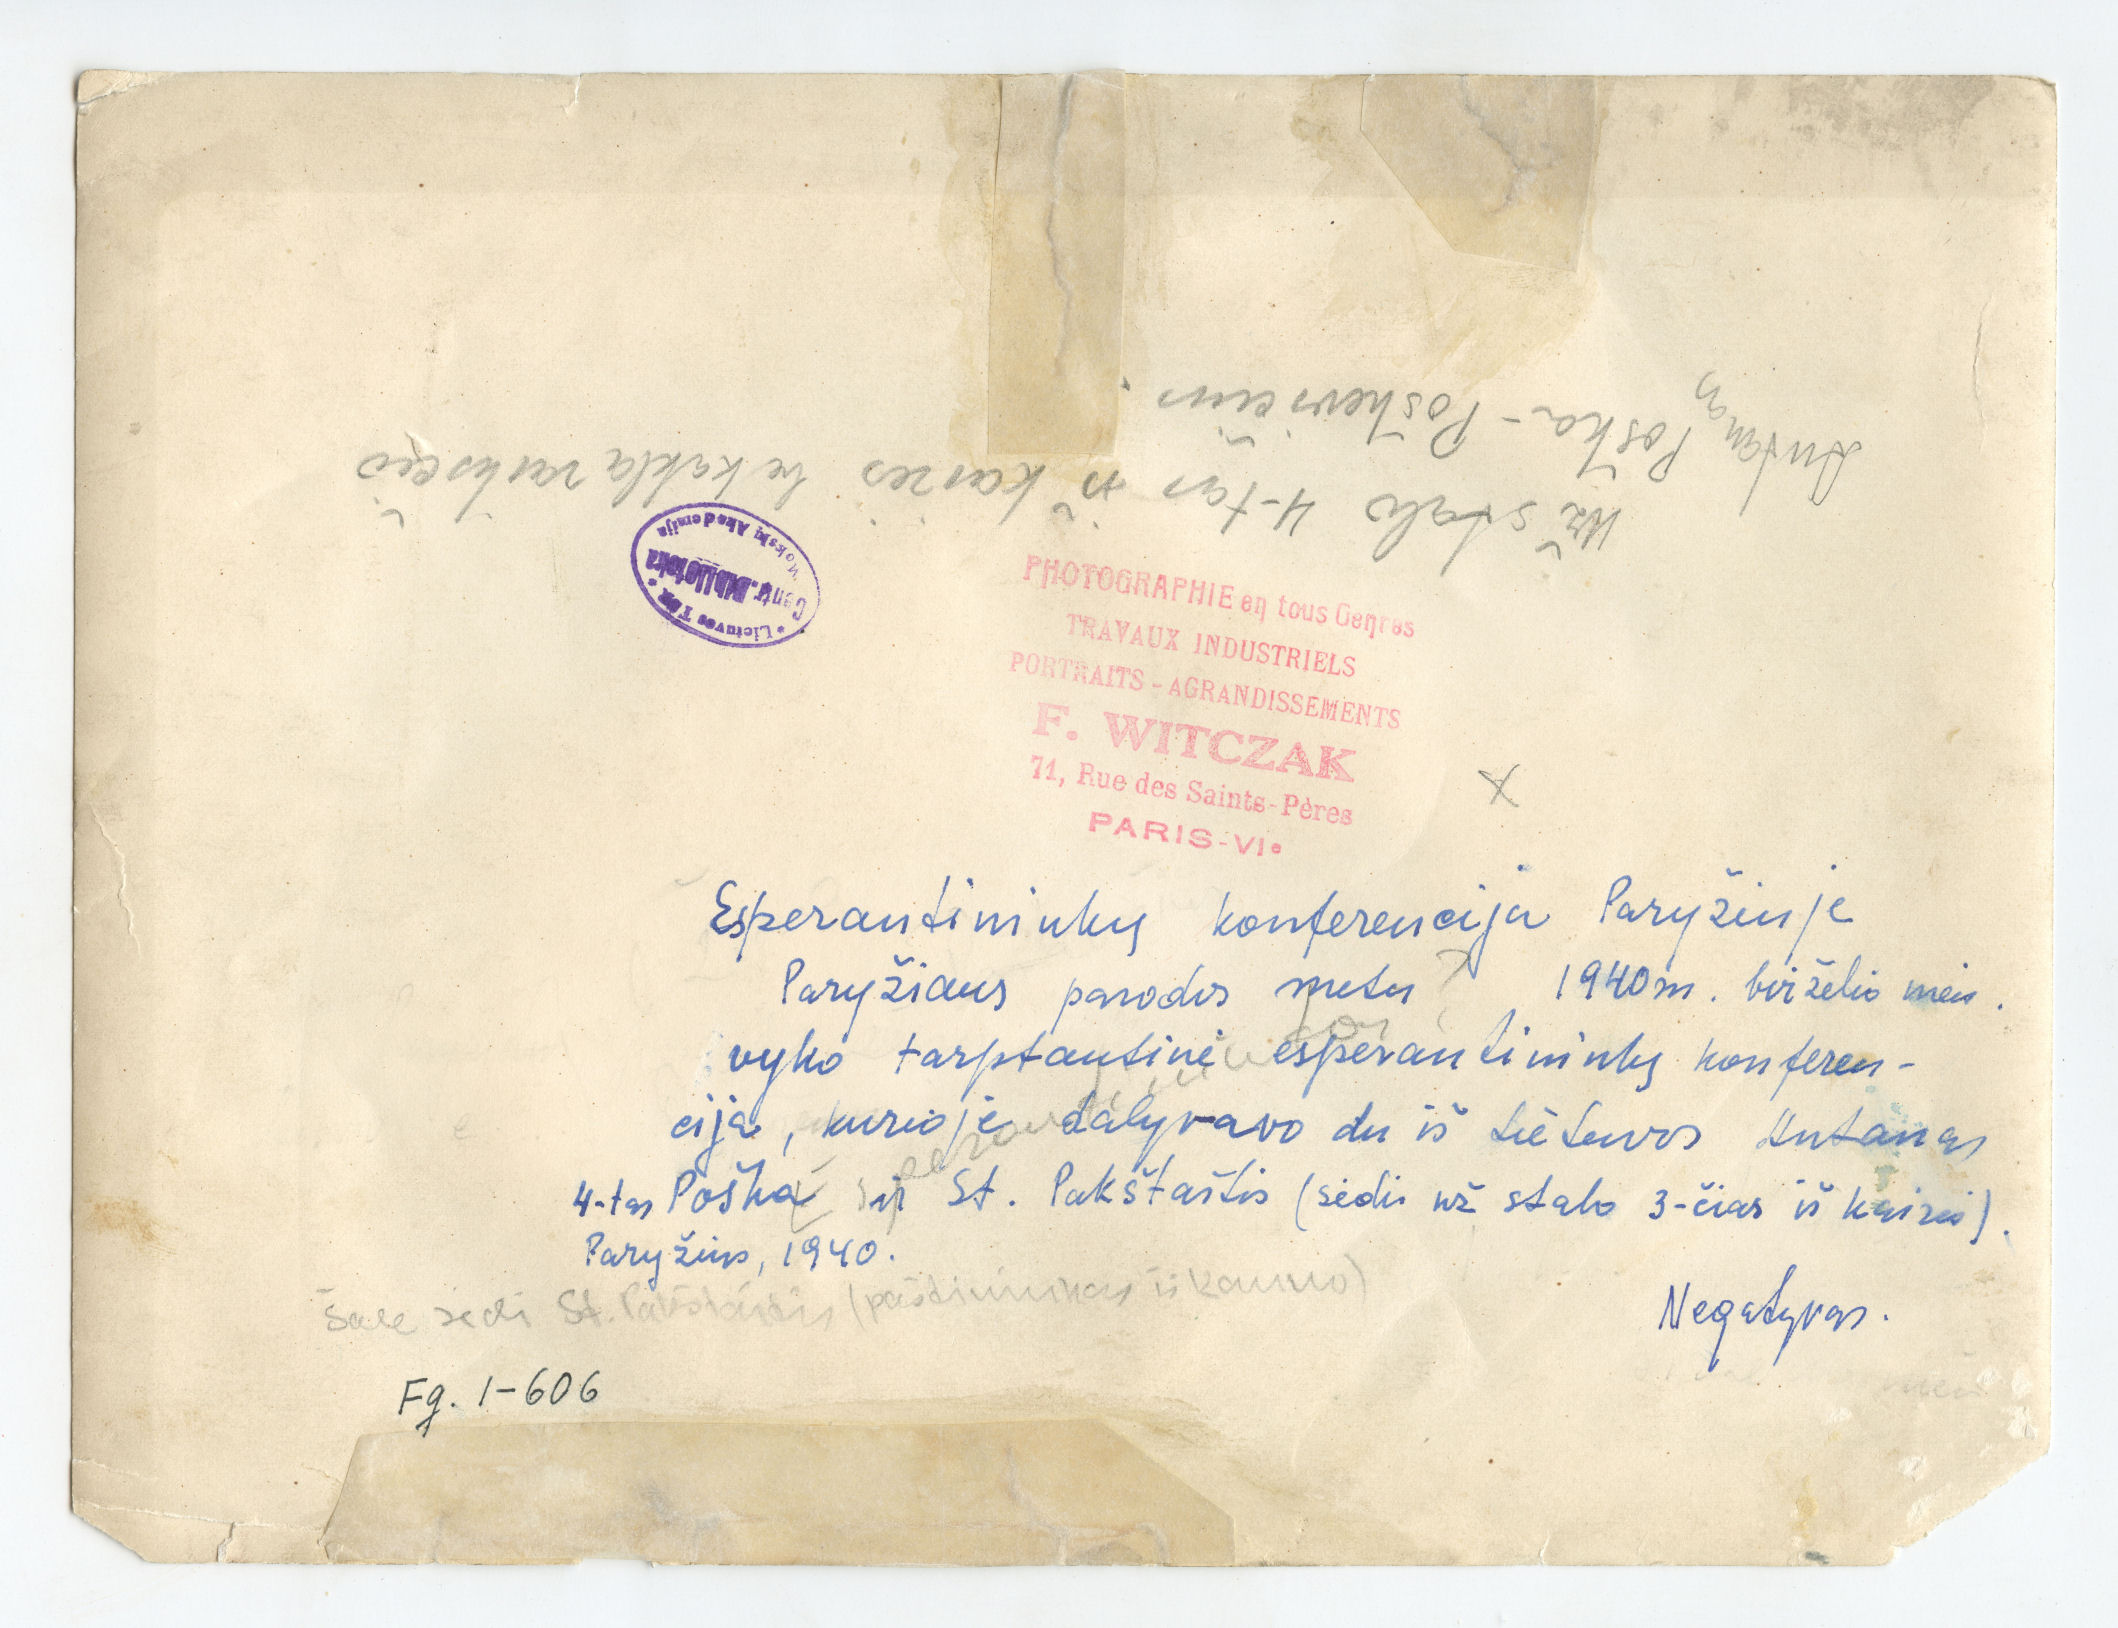 Antanas Poška-Poškevičius.
Už stalo 4-tas iš kairės be kaklaraiščio
* Lietuvos TSR *
Centr. Biblioteka
Mokslų Akademija
PHOTOGRAPHIE en tous Genres
TRAVAUX INDUSTRIELS
PORTRAITS - AGRANDISSEMENTS
F. WITCZAK
71, Rue des Saints-Pères
PARIS-VIe
x
Esperantininkų konferencija Paryžiuje
Paryžiaus parodos metu 1940 m. birželio mėn.
vyko tarptautinė esperantininkų konferen-
cija, kurioje dalyvavo du iš Lietuvos Antanas
4-tas Poška ir St. Pakštaštis (sėdi už stalo 3-čias iš kairės).
Paryžius, 1940.
Šale sėdi St. Pakštaštis (paštininkas iš Kauno)
Negatyvas.
Fg. 1-606